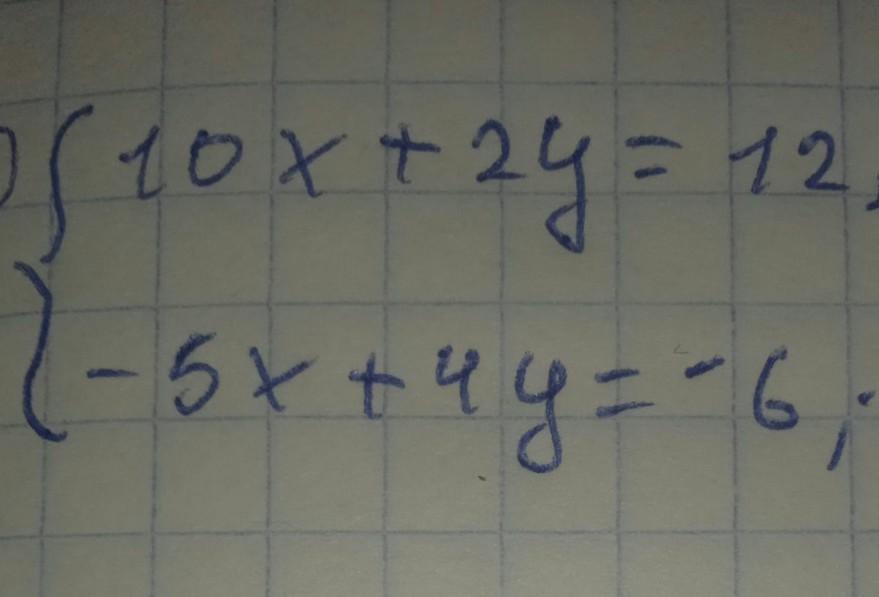 ) { 10x + 2y = 12,
-5x + 4y = -6;